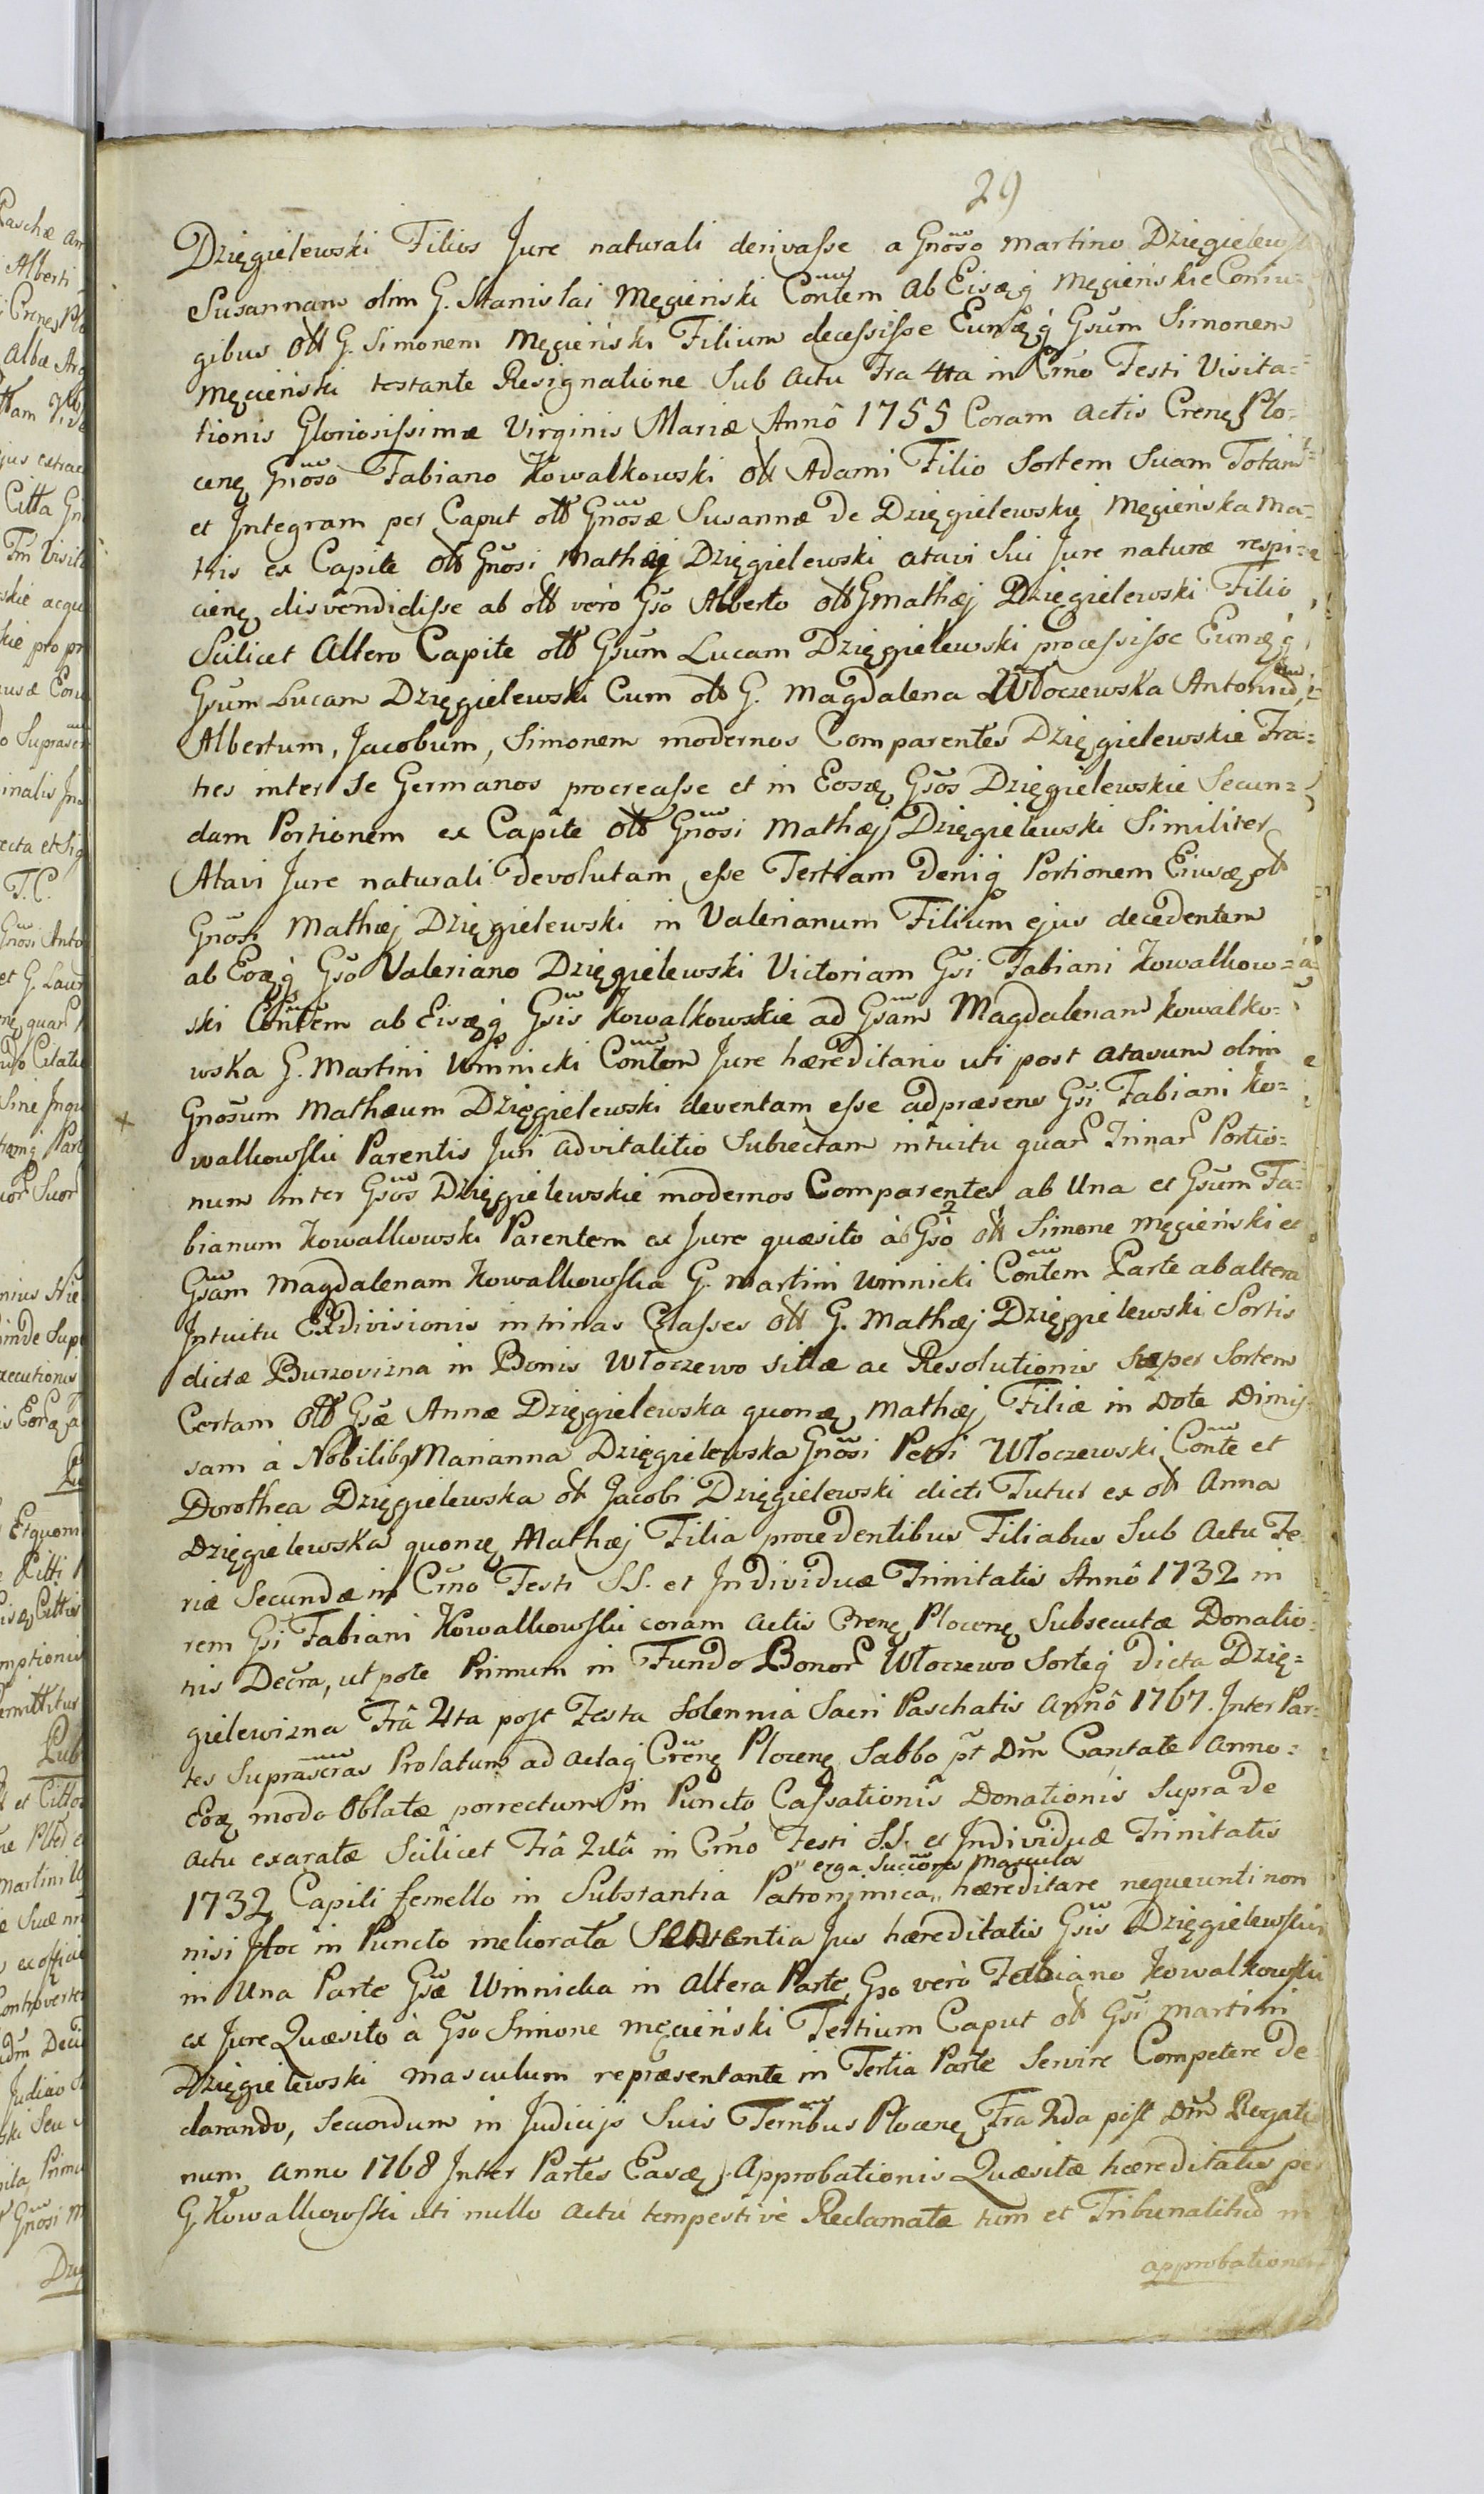 29
Dzięgielewski Filios Jure naturali derivasse a Gnoso Martino Dzięgielewski
Susannam olim G. Stanislai Męcieński Contem ab Eisq̃ Męcieńskie Coniu=
gibus olt G. Simonem Męcieński Filium decessisse Eumq̃ Gsum Simonem
Męcieński testante Resignatione Sub actu Fra 4ta in Crno Festi Visita=
tionis Gloriosissimæ Virginis Mariæ Annô 1755 Coram actis Crenę Plo=
cenę Gnoso Fabiano Kowalkowski olt Adami Filio Sortem Suam Totam
et Integram per Caput olt Gnosæ Susannæ de Dzięgielewskię Męcieńska Ma=
tris ex Capite olt Gnosi Mathæj Dzięgielewski atavi Sui Jure naturæ respi=
cienę disvendidisse ab olt verò Gso Alberto olt G Mathæj Dzięgielewski Filio
Scilicet Altero Capite olt Gsum Lucam Dzięgielewski processisse Eumq̃
Gsum Lucam Dzięgielewski Cum olt G. Magdalena Włoczewska Antonium,
Albertum, Jacobum, Simonem modernos Comparentes Dzięgielewskie Fra=
tres inter Se Germanos procreasse et in Eosę Gsos Dzięgielewskie Secun=
dam Portionem ex Capite olt Gnosi Mathæj Dzięgielewski Similiter
Atavi Jure naturali devolutam esse Tertiam Deniq̃ Portionem Eiusę olt
Gnosi Mathæj Dzięgielewski in Valerianum Filium ejus decedentem
ab Eoq̃ Gso Valeriano Dzięgielewski Victoriam Gsi Fabiani Kowalkow=
ski Contem ab Eisq̃ Gsis Kowalkowskie ad Gsam Magdalenam Kowalko=
wska G. Martini Winnicki Contem Jure hæreditario uti post atavum olim
Gnosum Mathæum Dzięgielewski deventam esse adpræsens Gsi Fabiani Ko=
walkowski Parentis Juri advitalitio Subiectam intuitu quar Trinar Portio=
num inter Gsos Dzięgielewskie modernos Comparentes ab Una et Gsum Fa=
bianum Kowalkowski Parentem ex Jure quæsito à Gso olt Simone Męcieński et
Gsam Magdalenam Kowalkowska G. Martini Winnicki Contem Parte ab altera
Intuitu Exdivisionis in trinas Classes olt G. Mathæj Dzięgielewski Sortis
dictæ Burzovizna in Bonis Włoczewo sittæ ac Resolutionis Super Sortem
Certam olt Gsæ Annæ Dzięgielewska quonę Mathæj Filiæ in Dote Dimis=
sam à Nobilibq Marianna Dzięgielewska Gnosi Petri Włoczewski Conte et
Dorothea Dzięgielewska olt Jacobi Dzięgielewski dicti Tutut ex olt Anna
Dzięgielewska quonę Mathæj Filia procedentibus Filiabus Sub Actu Fe=
riæ Secundæ in Crno Festi S.S. et Individuæ Trinitatis Annô 1732 in
rem Gsi Fabiani Kowalkowski coram actis Crenę Plocenę Subsecutæ Donatio=
nis Decra, ut pote Primum in Fundo Bonor Włoczewo Sorteq̃ Dicta Dzię=
gielewizna Frâ 4ta post Festa Solennia Sacri Paschatis Annô 1767. Inter Par=
tes Suprascras Prolatum ad actaq̃ Crenę Plocenę Sabbo pt Dm Cantate anno=
Eoę modo Oblatæ porrectum in Puncto Cassationis Donationis Supra de
actu exaratæ Scilicet Frâ 2dâ in Crno Festi S.S. et Individuæ Trinitatis
" erga Succiores Masculos
1732 Capiti femello in Substantia Patronjmica " hæreditare nequeunti non
nisi Hoc in Puncto meliorata Sententia Jus hæreditatis Gsis Dzięgielewskim
in Una Parte Gsæ Winnicka in Altera Parte, Gso verò Fabiano Kowalkowski
ex Jure Quæsito à Gso Simone Męcieński Tertium Caput olt Gsi Martini
Dzięgielewski masculum repræsentante in Tertia Parte Servire Competere De=
clarando, Secundum in Judicijs Suis Ternbus Plocenę Fra 2da post Dm Rogatio
num anno 1768 Inter Partes Easę Approbationis Quæsitæ hæreditatis per
G. Kowalkowski uti nullo actu tempestivè Reclamatæ tum et Tribunalitiæ
approbationem